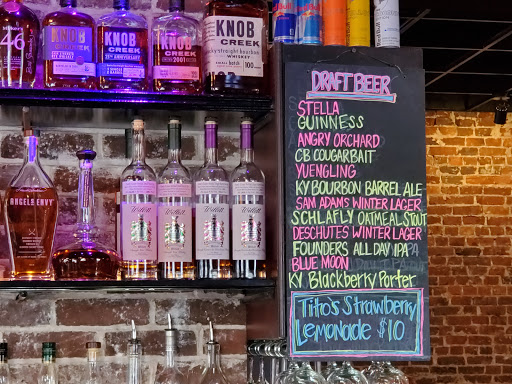 46
KNOB
CREEK
KNOB
CREEK
KNOB
CREEK
2001
KNOB
CREEK
WHISKEY
100
ANGELS ENVY
Willett
Willett
Willett
Willett
DRAFT BEER
STELLA
GUINNESS
ANGRY ORCHARD
CB COUGARBAIT
YUENGLING
KY BOURBON BARREL ALE
SAM ADAMS WINTER LAGER
SCHLAFLY OATMEAL STOUT
DESCHUTES WINTER LAGER
FOUNDERS ALL DAY IPA
BLUE MOON
KY BlackBerry Porter
Tito's Strawberry
Lemonade $10